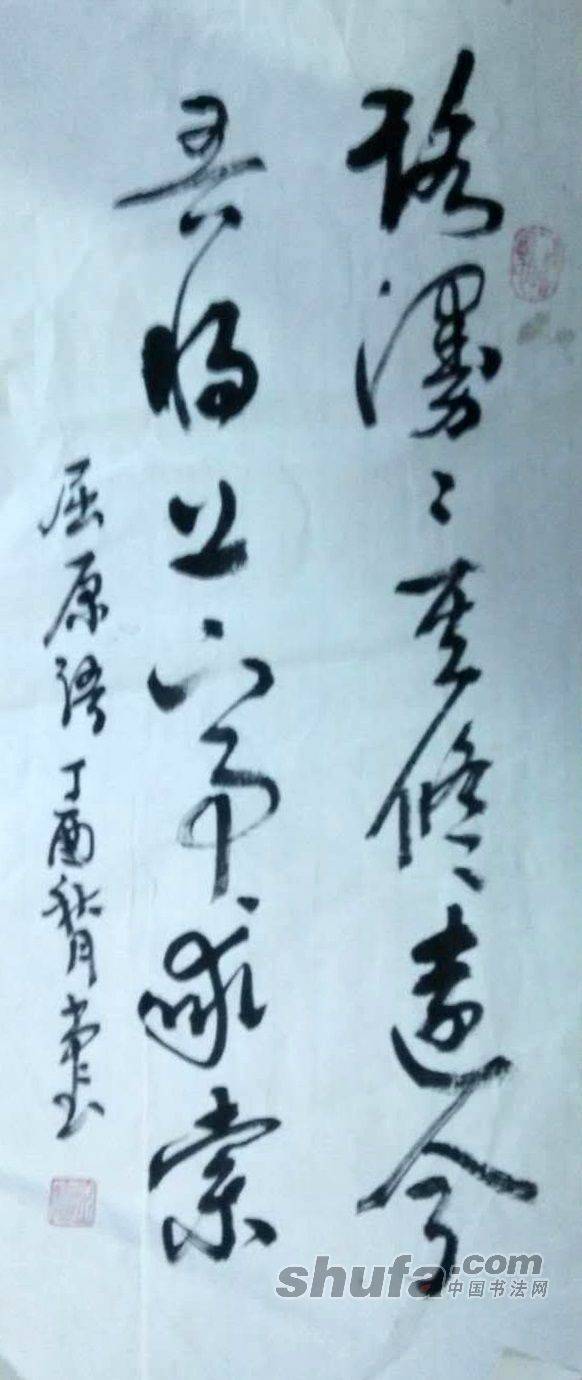 路漫漫其修远兮
吾将上下而求索
屈原语 丁酉秋月
shufa.com
中国书法网